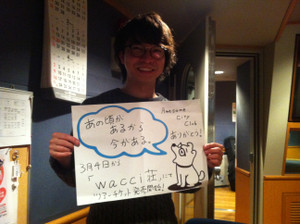 あの頃が
あるから
今がある。
Awesome
City
Club
ありがとう!
3月4日から
「wacci荘」にて
ツアーチケット発売開始!